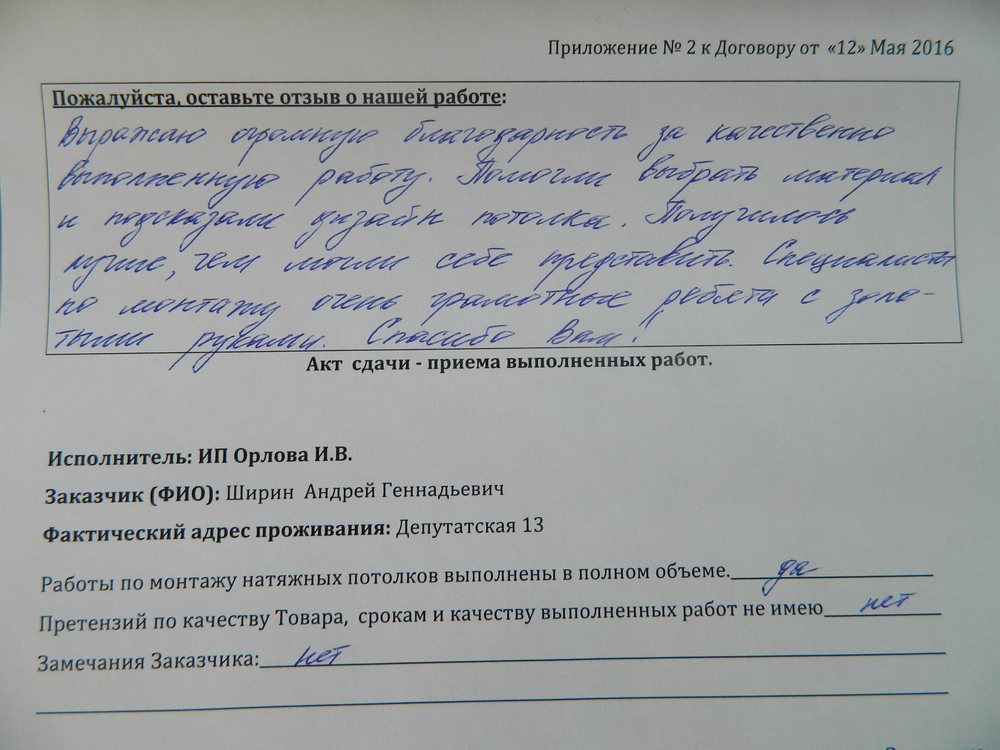 Приложение № 2 к Договору от «12» Мая 2016
Пожалуйста, оставьте отзыв о нашей работе:
Выражаю огромную благодарность за качественно
выполненную работу. Помогли выбрать материал
и подсказали дизайн потолка. Получилось
лучше, чем могли себе представить. Специалисты
по монтажу очень грамотные ребята с золо-
тыми руками. Спасибо Вам!
Акт сдачи - приема выполненных работ.
Исполнитель: ИП Орлова И.В.
Заказчик (ФИО): Ширин Андрей Геннадьевич
Фактический адрес проживания: Депутатская 13
Работы по монтажу натяжных потолков выполнены в полном объеме. да
Претензий по качеству Товара, срокам и качеству выполненных работ не имею нет
Замечания Заказчика: нет